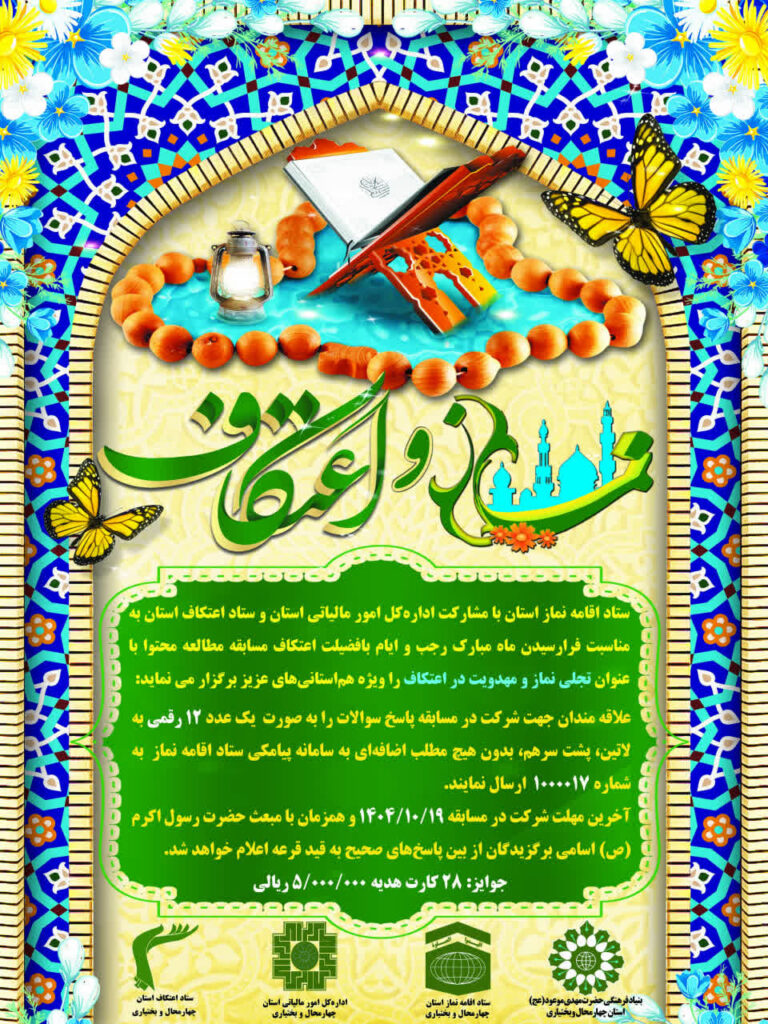 نماز و اعتکاف
ستاد اقامه نماز استان با مشارکت اداره‌کل امور مالیاتی استان و ستاد اعتکاف استان به
مناسبت فرارسیدن ماه مبارک رجب و ایام بافضیلت اعتکاف مسابقه مطالعه محتوا با
عنوان تجلی نماز و مهدویت در اعتکاف را ویژه هم‌استانی‌های عزیز برگزار می نماید:
علاقه مندان جهت شرکت در مسابقه پاسخ سوالات را به صورت یک عدد ۱۲ رقمی به
لاتین، پشت سرهم، بدون هیچ مطلب اضافه‌ای به سامانه پیامکی ستاد اقامه نماز به
شماره ۱۰۰۰۰۱۷ ارسال نمایند.
آخرین مهلت شرکت در مسابقه ۱۴۰۴/۱۰/۱۹ و همزمان با مبعث حضرت رسول اکرم
(ص) اسامی برگزیدگان از بین پاسخ‌های صحیح به قید قرعه اعلام خواهد شد.
جوایز: ۲۸ کارت هدیه ۵/۰۰۰/۰۰۰ ریالی
بنیاد فرهنگی حضرت مهدی موعود (عج)
استان چهارمحال وبختیاری
ستاد اقامه نماز استان
چهارمحال و بختیاری
اداره‌کل امور مالیاتی استان
چهارمحال و بختیاری
ستاد اعتکاف استان
چهارمحال و بختیاری